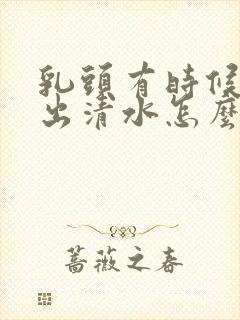 乳頭有時候
出清水怎麼
蔷薇之春